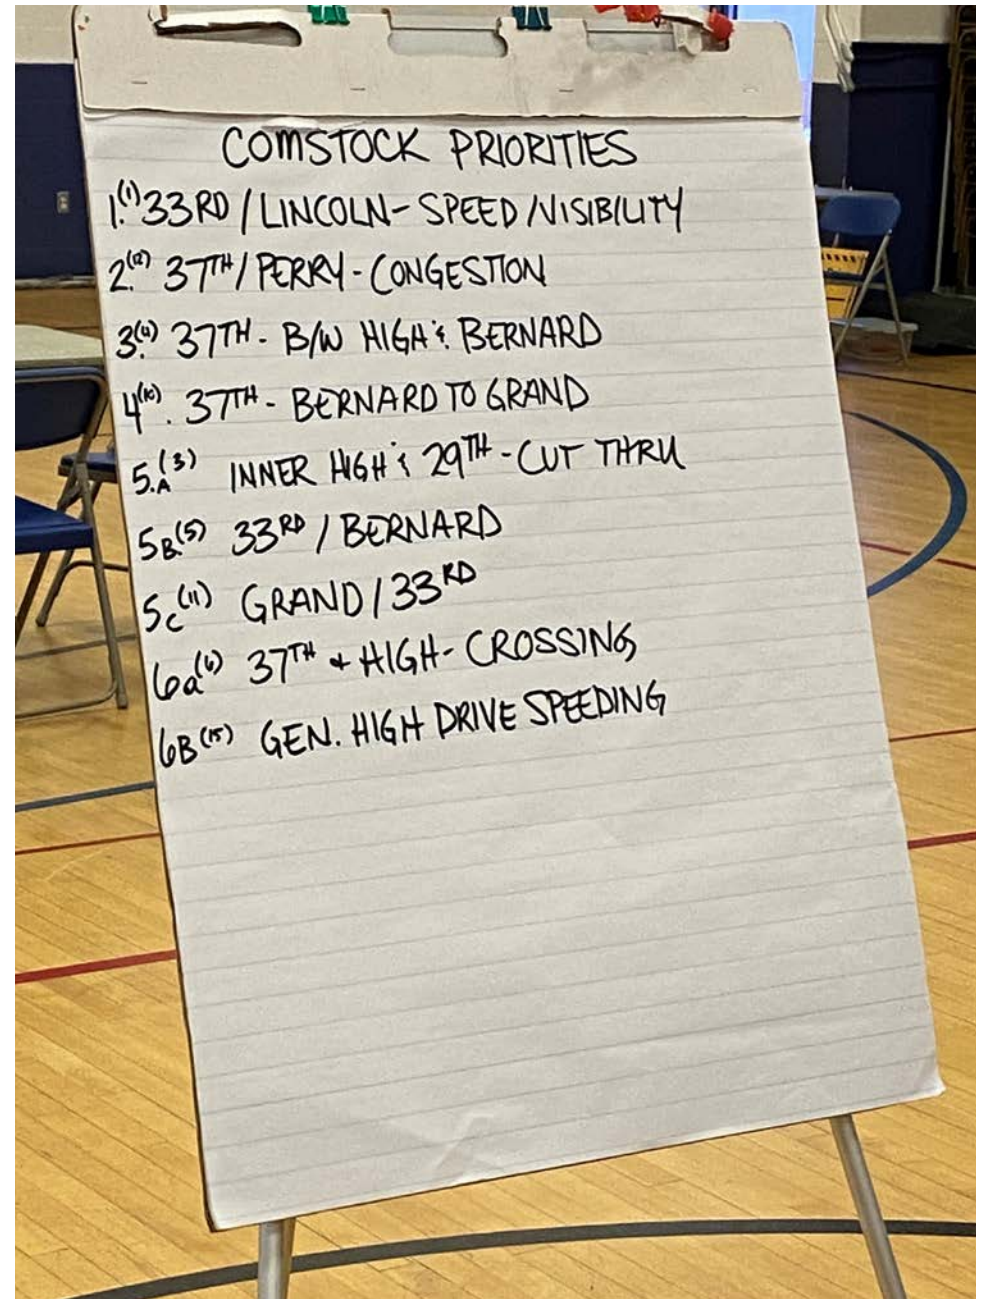 COMSTOCK PRIORITIES
1.(1) 33RD / LINCOLN - SPEED / VISIBILITY
2.(12) 37TH / PERRY - CONGESTION
3.(4) 37TH - B/W HIGH & BERNARD
4(10). 37TH - BERNARD TO GRAND
5.A(3) INNER HIGH & 29TH - CUT THRU
5B.(5) 33RD / BERNARD
5C(11) GRAND / 33RD
6a(6) 37TH + HIGH - CROSSING
6B(15) GEN. HIGH DRIVE SPEEDING